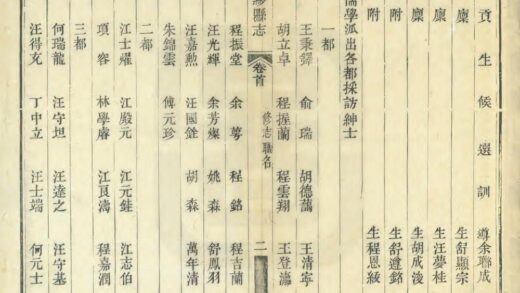 貢生候選訓導余聯成
廩生舒顯宗
廩生汪夢桂
廩生胡成浚
附生舒遵銘
附生程恩綬
儒學派出各都採訪紳士
一都
王秉鐸 俞瑞 胡德藹 王清寧
胡立卓 程握蘭 程雲翔 王登瀛
黟縣志 卷首 修志職名 二
程振堂 余萼 程銘 程吉蘭
汪光輝 余芳燦 姚森 舒鳳羽
汪嘉勲 汪國銓 胡森 萬年清
朱錦雲 傅元珍
二都
江士燿 江殿元 江元鉎 江志伯
項容 林學睿 江濤 程嘉潤
三都
何瑞龍 汪守坦 汪達之 汪守基
汪得充 丁中立 汪士端 何元士